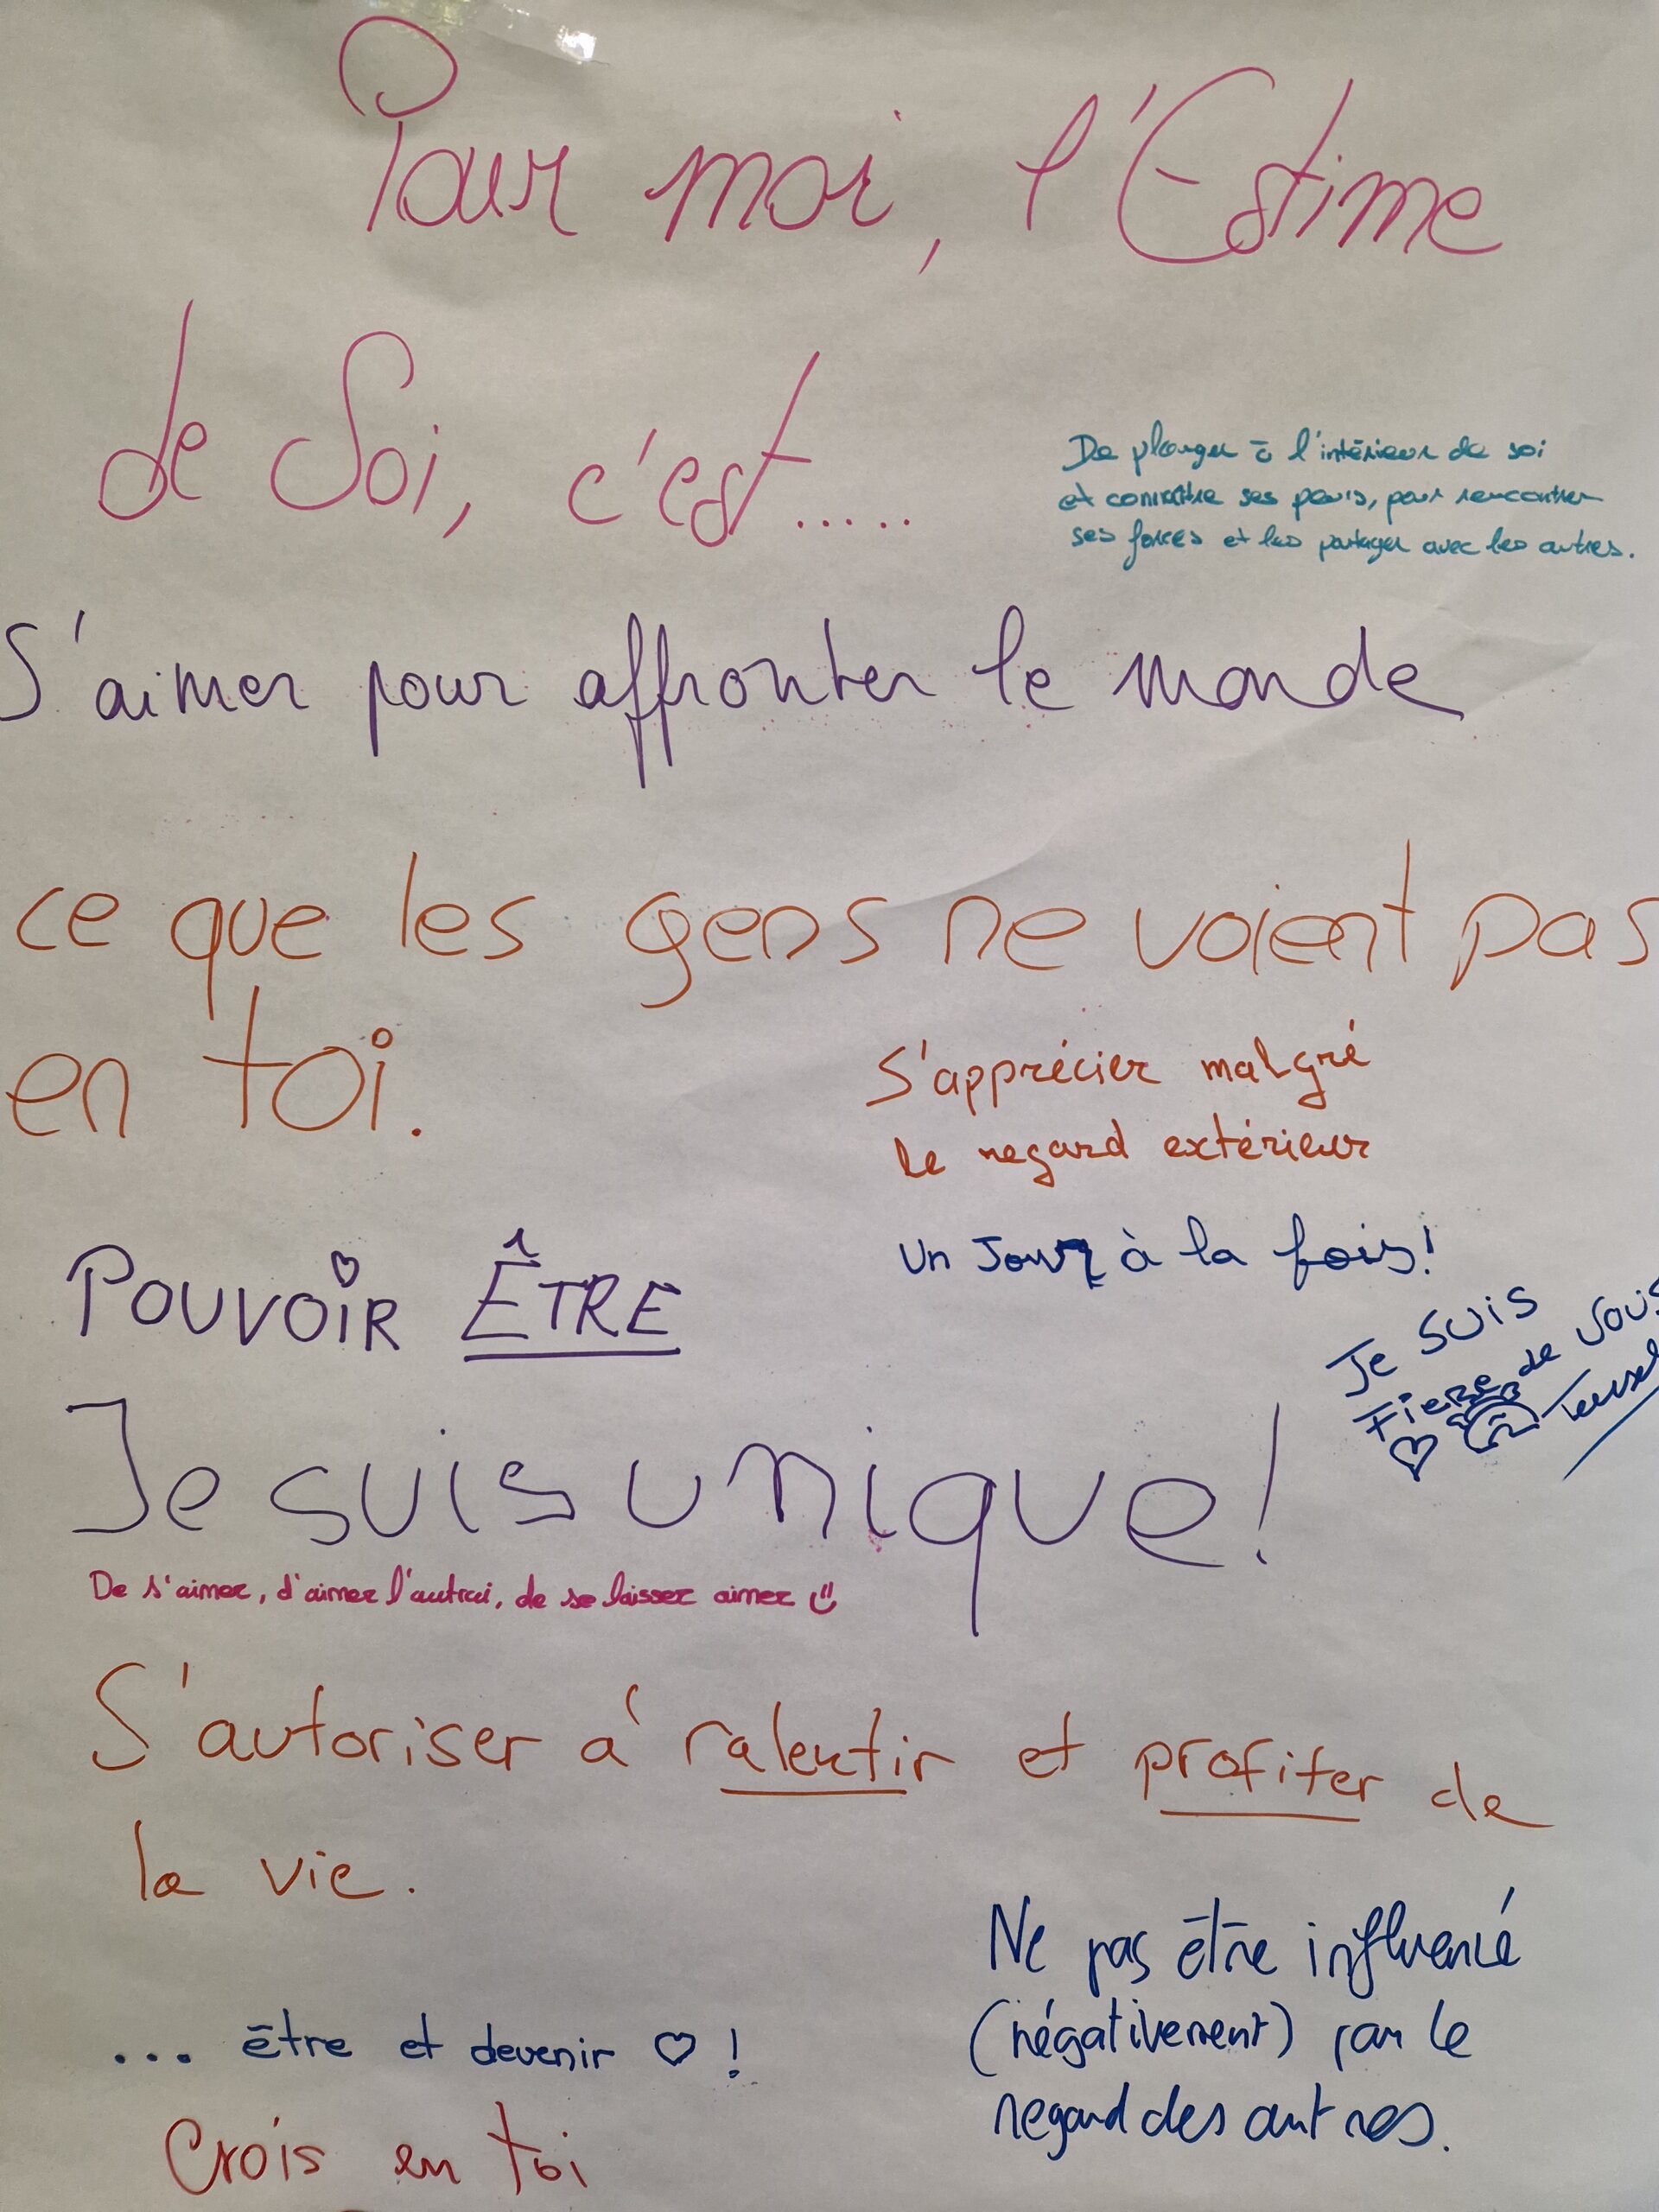 Pour moi, l'Estime
de Soi, c'est.....
De plonger à l'intérieur de soi
et connaître ses peurs, pour rencontrer
ses forces et les partager avec les autres.
S'aimer pour affronter le monde
ce que les gens ne voient pas
en toi.
S'apprécier malgré
le regard extérieur
Un Jour à la fois!
POUVOIR ÊTRE
Je suis
Fiere de vous
Je suis unique!
De s'aimer, d'aimer l'autrui, de se laisser aimer
S'autoriser à ralentir et profiter de
la vie.
Ne pas être influencé
(négativement) par le
regard des autres.
... être et devenir ♡ !
Crois en toi